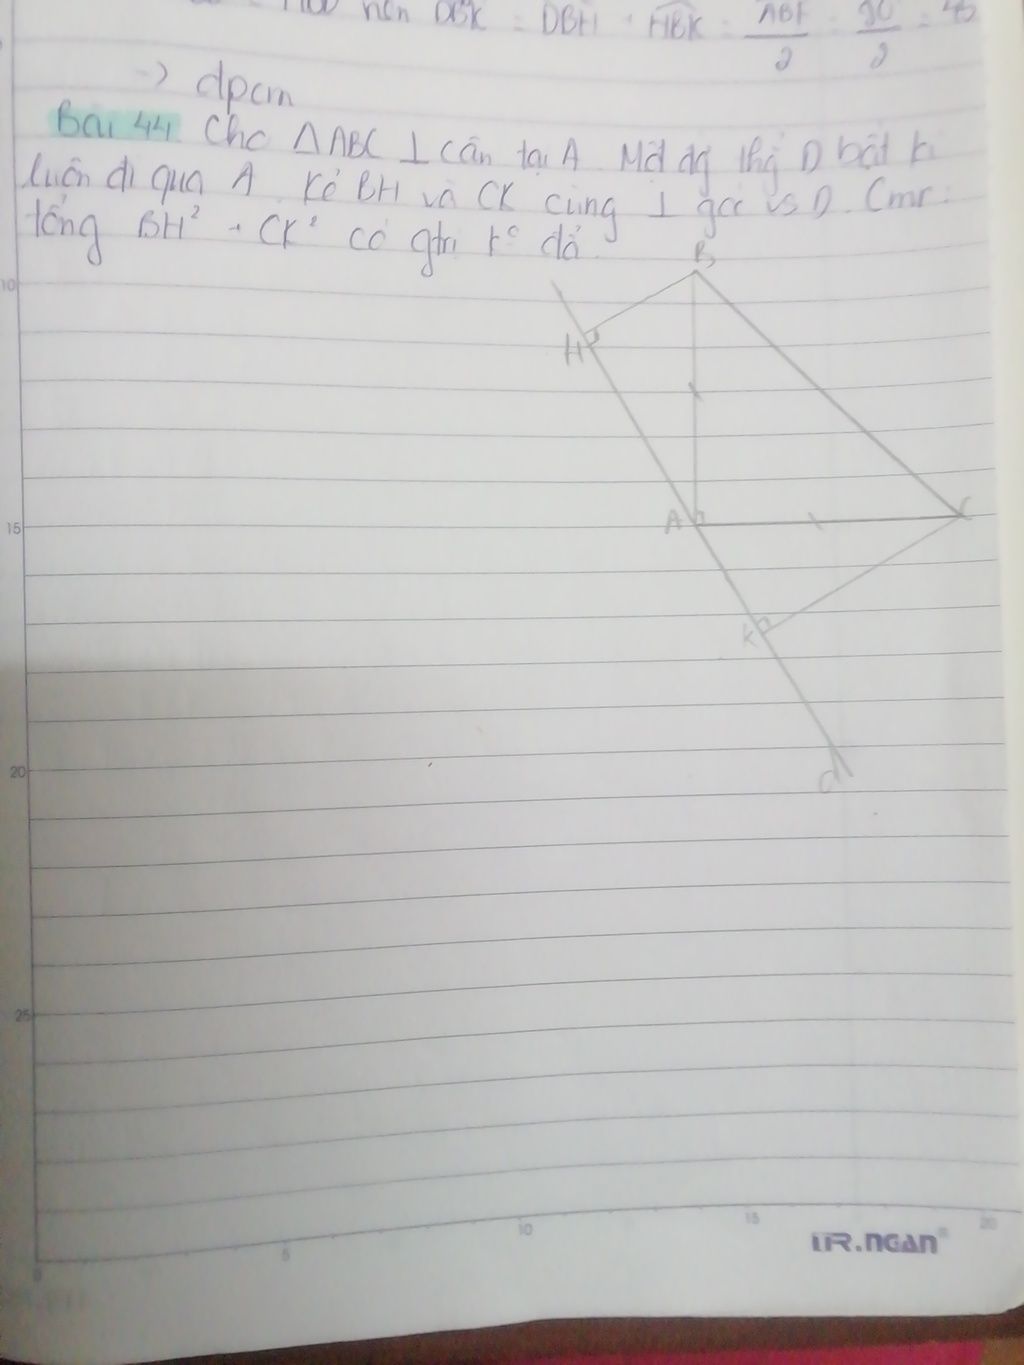 nên DBK = DBH + HBK = ABF/2 = 90/2 = 45
-> dpcm
Bài 44 Cho △ABC ⊥ cân tại A. Một đg thg D bất kì
luôn đi qua A. Kẻ BH và CK cùng ⊥ góc vs D. Cmr:
tổng BH² + CK² có gtrị k° đổi.
B
H
A
C
K
d
10
15
20
25
0
5
10
15
20
UR.nGan®